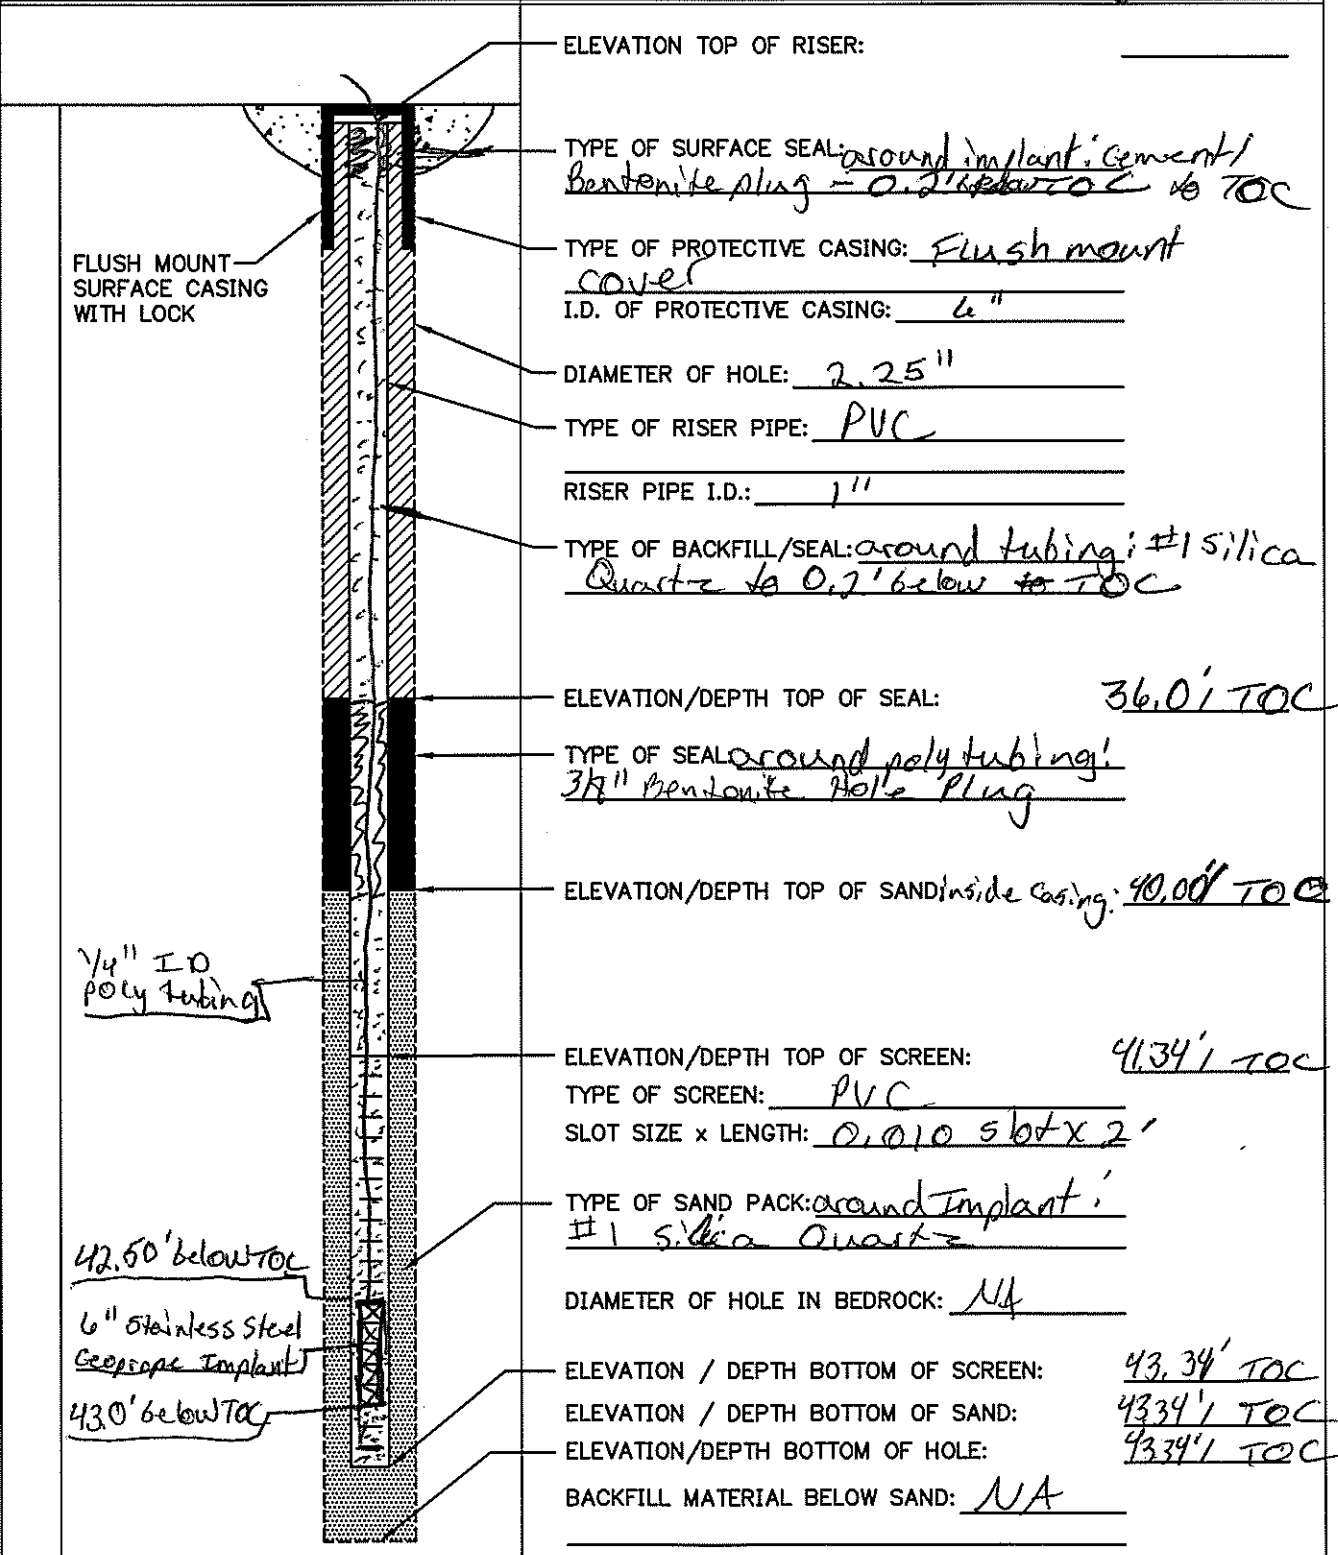 ELEVATION TOP OF RISER:
TYPE OF SURFACE SEAL: around implant: cement/
Bentonite plug - 0.2' below TOC to TOC
FLUSH MOUNT
SURFACE CASING
WITH LOCK
TYPE OF PROTECTIVE CASING: Flush mount
cover
I.D. OF PROTECTIVE CASING: 6"
DIAMETER OF HOLE: 2.25"
TYPE OF RISER PIPE: PVC
RISER PIPE I.D.: 1"
TYPE OF BACKFILL/SEAL: around tubing: #1 Silica
Quartz to 0.2' below TOC
ELEVATION/DEPTH TOP OF SEAL: 36.0'/ TOC
TYPE OF SEAL around poly tubing:
3/8" Bentonite Hole Plug
ELEVATION/DEPTH TOP OF SAND inside casing: 40.00' TOC
1/4" ID
poly tubing
ELEVATION/DEPTH TOP OF SCREEN: 41.34'/ TOC
TYPE OF SCREEN: PVC
SLOT SIZE x LENGTH: 0.010 slot x 2'
TYPE OF SAND PACK: around Implant:
#1 silica Quartz
42.50' below TOC
6" Stainless Steel
Geoprope Implant
43.0' below TOC
DIAMETER OF HOLE IN BEDROCK: NA
ELEVATION / DEPTH BOTTOM OF SCREEN: 43.34' TOC
ELEVATION / DEPTH BOTTOM OF SAND: 43.34'/ TOC
ELEVATION/DEPTH BOTTOM OF HOLE: 43.34'/ TOC
BACKFILL MATERIAL BELOW SAND: NA